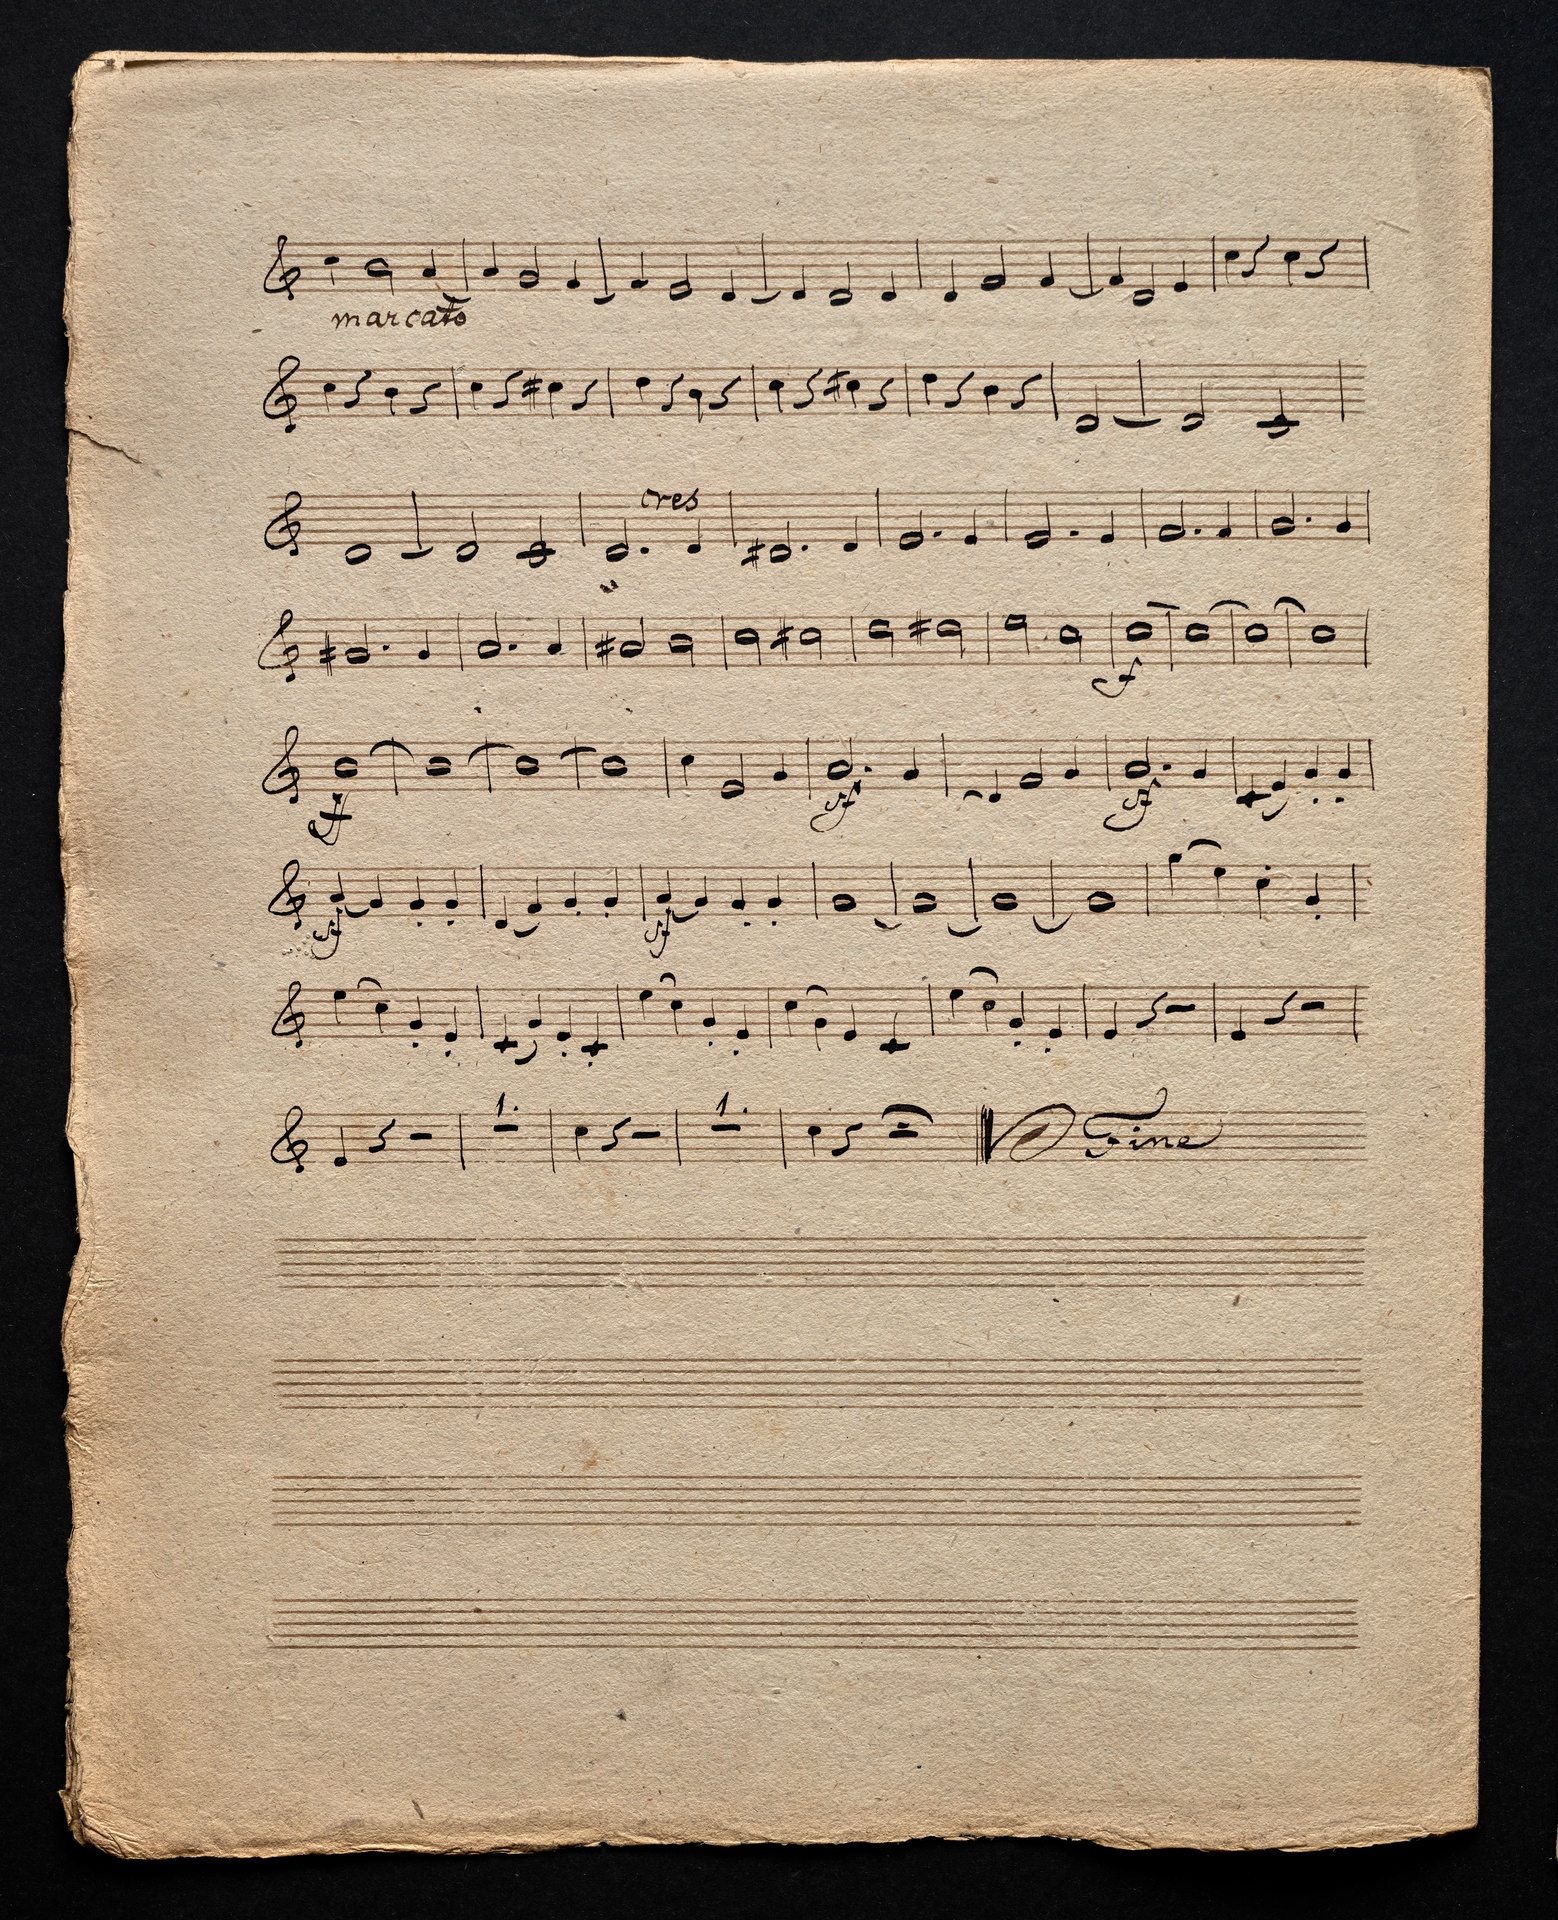 marcato
cres
f
f sf sf
sf sf
1. 1. Fine